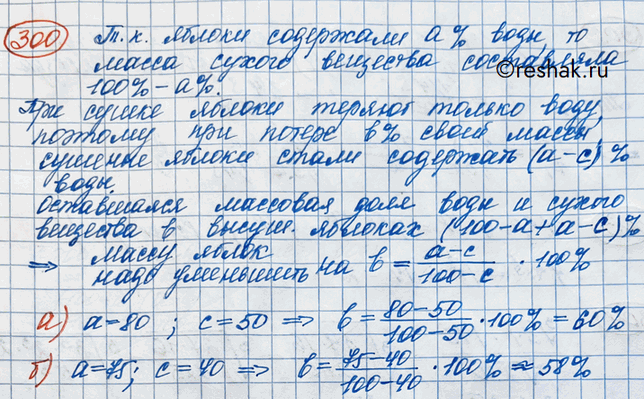 300 Т.к. яблоки содержали a% воды, то
масса сухого вещества составляла
100% - a%.
©reshak.ru
При сушке яблоки теряют только воду,
поэтому при потере b% своей массы,
сушеные яблоки стали содержать (a-c)%
воды.
Оставшаяся массовая доля воды и сухого
вещества в высуш. яблоках (100-a+a-c)%
⇒ массу яблок
надо уменьшить на b = (a-c)/(100-c) · 100%
а) a=80 ; c=50 ⇒ b = (80-50)/(100-50) · 100% = 60%
б) a=75; c=40 ⇒ b = (75-40)/(100-40) · 100% ≈ 58%